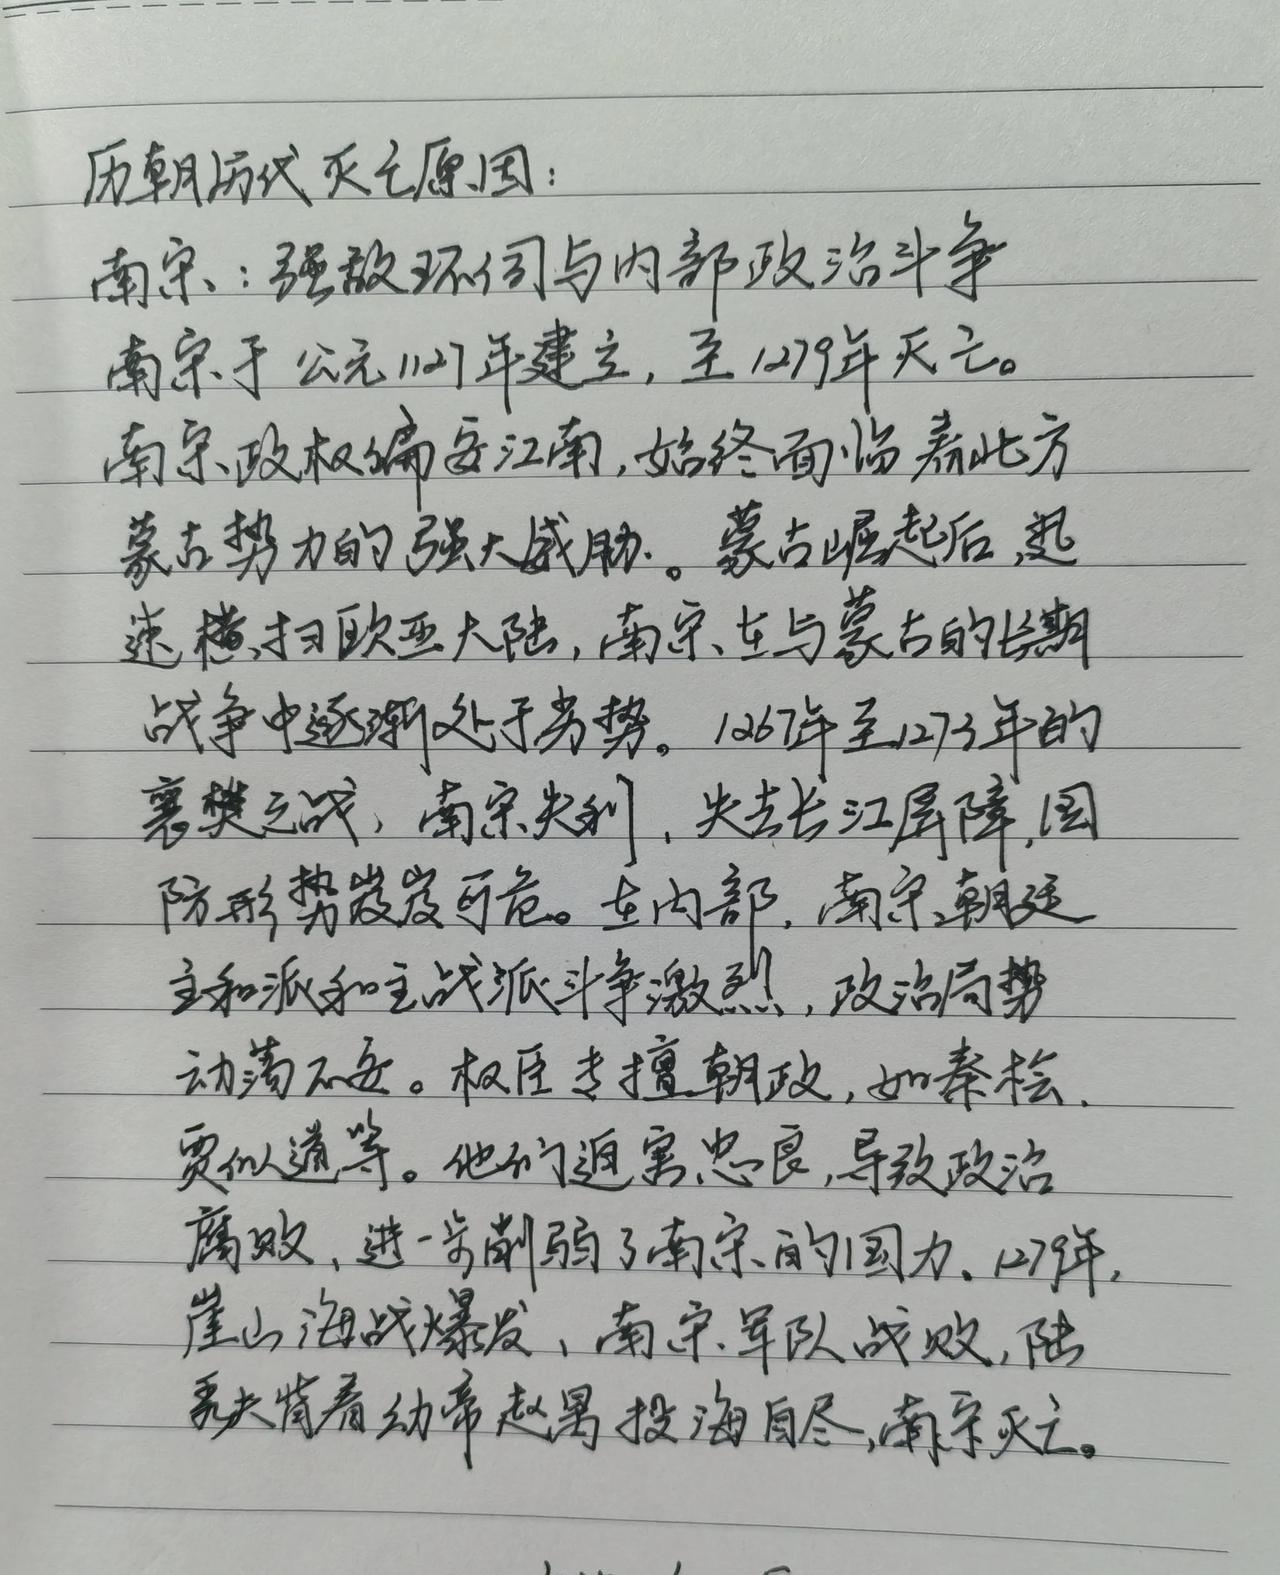 历朝历代灭亡原因：
南宋：强敌环伺与内部政治斗争
南宋于公元1127年建立，至1279年灭亡。
南宋政权偏安江南，始终面临着北方
蒙古势力的强大威胁。蒙古崛起后，迅
速横扫欧亚大陆，南宋在与蒙古的长期
战争中逐渐处于劣势。1267年至1273年的
襄樊之战，南宋失利，失去长江屏障，国
防形势岌岌可危。在内部，南宋朝廷
主和派和主战派斗争激烈，政治局势
动荡不安。权臣专擅朝政，如秦桧、
贾似道等。他们迫害忠良，导致政治
腐败，进一步削弱了南宋的国力。1279年，
崖山海战爆发，南宋军队战败，陆
秀夫背着幼帝赵昺投海自尽，南宋灭亡。